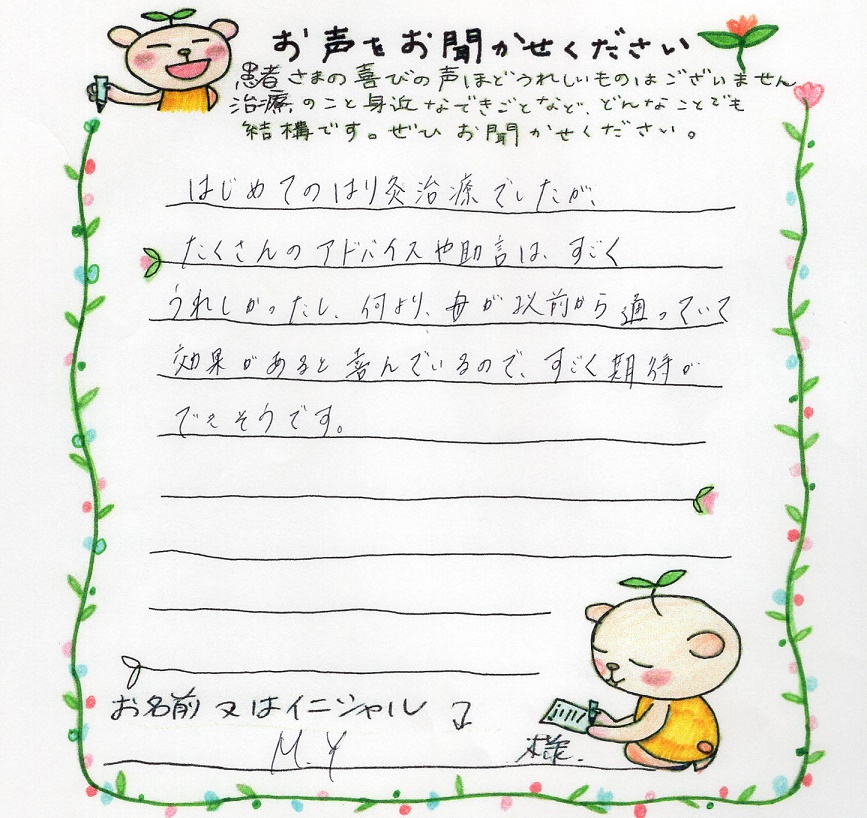 お声をお聞かせください
患者さまの喜びの声ほどうれしいものはございません
治療のこと身近なできごとなど、どんなことでも
結構です。ぜひお聞かせください。
はじめてのはり灸治療でしたが、
たくさんのアドバイスや助言は、すごく
うれしかったし、何より、母が以前から通っていて
効果があると喜んでいるので、すごく期待が
できそうです。
お名前又はイニシャル
M.Y 様.